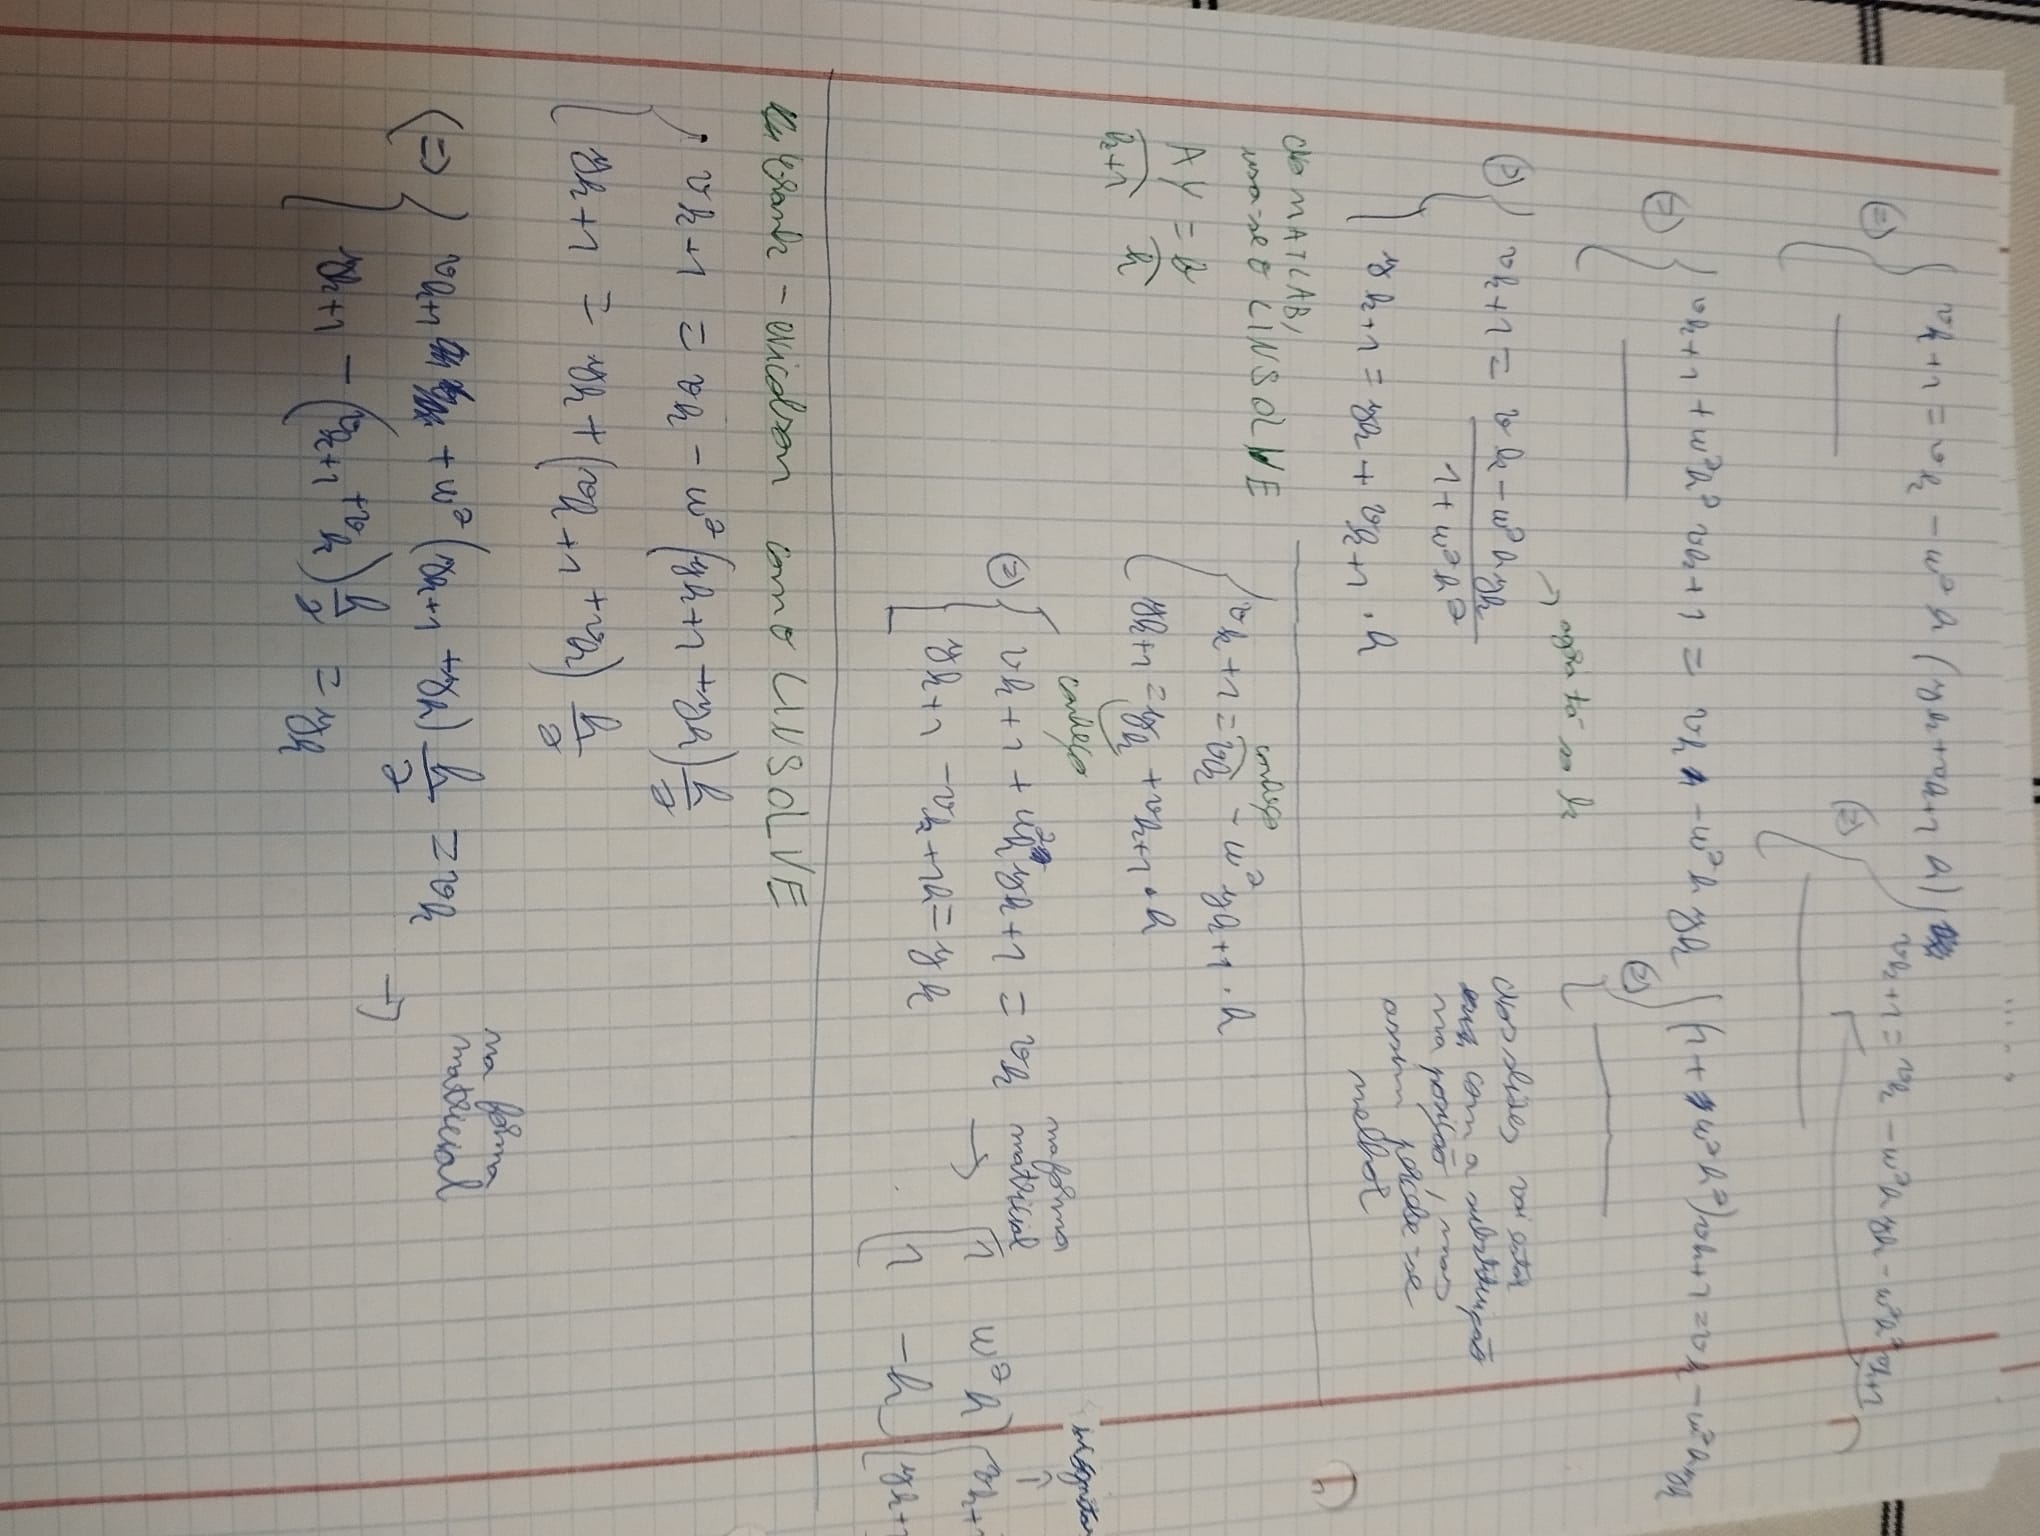 (=) { vₖ₊₁ = vₖ - w²h (yₖ + vₖ₊₁ h)
(=) { vₖ₊₁ = vₖ - w²h yₖ - w²h² vₖ₊₁
(=) { vₖ₊₁ + w²h² vₖ₊₁ = vₖ - w²h yₖ
(=) { vₖ₊₁ (1 + w²h²) = vₖ - w²h yₖ
→ agora tá só k
(=) { vₖ₊₁ = (vₖ - w²h yₖ) / (1 + w²h²)
yₖ₊₁ = yₖ + vₖ₊₁ · h
nos slides vai estar
com a substituição
na posição, mas
assim percebe-se
melhor
do MATLAB,
usa-se o LINSOLVE
AY = b
k+1 k
conheço
{ vₖ₊₁ = vₖ - w² yₖ₊₁ · h
yₖ₊₁ = yₖ + vₖ₊₁ · h
conheço
(=) { vₖ₊₁ + w²h yₖ₊₁ = vₖ
yₖ₊₁ - vₖ₊₁ h = yₖ
na forma
matricial
→
[ 1 w²h
1 -h ] [ vₖ₊₁
yₖ₊₁
Crank-nicolson com o LINSOLVE
{ vₖ₊₁ = vₖ - w² (yₖ₊₁ + yₖ) h/2
yₖ₊₁ = yₖ + (vₖ₊₁ + vₖ) h/2
(=) { vₖ₊₁ + w² (yₖ₊₁ + yₖ) h/2 = vₖ
yₖ₊₁ - (vₖ₊₁ + vₖ) h/2 = yₖ
na forma
matricial
→